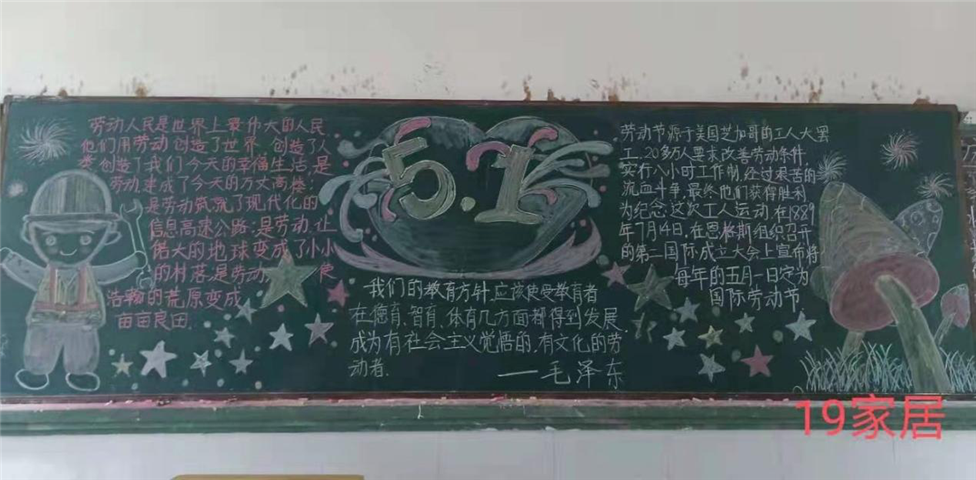 劳动人民是世界上最伟大的人民
他们用劳动创造了世界,创造了人
类创造了我们今天的幸福生活,是
劳动建成了今天的万丈高楼;
是劳动筑就了现代化的
信息高速公路;是劳动,让
偌大的地球变成了小小
的村落;是劳动
浩瀚的荒原变成
亩亩良田.
5.1
我们的教育方针,应该使受教育者
在德育,智育,体育几方面都得到发展,
成为有社会主义觉悟的,有文化的劳
动者.
——毛泽东
劳动节源于美国芝加哥的工人大罢
工,20多万人要求改善劳动条件,
实行八小时工作制,经过艰苦的
流血斗争,最终他们获得胜利
为纪念这次工人运动在1889
年7月14日,在恩格斯组织召开
的第二国际成立大会上宣布将
每年的五月一日定为
国际劳动节
19家居